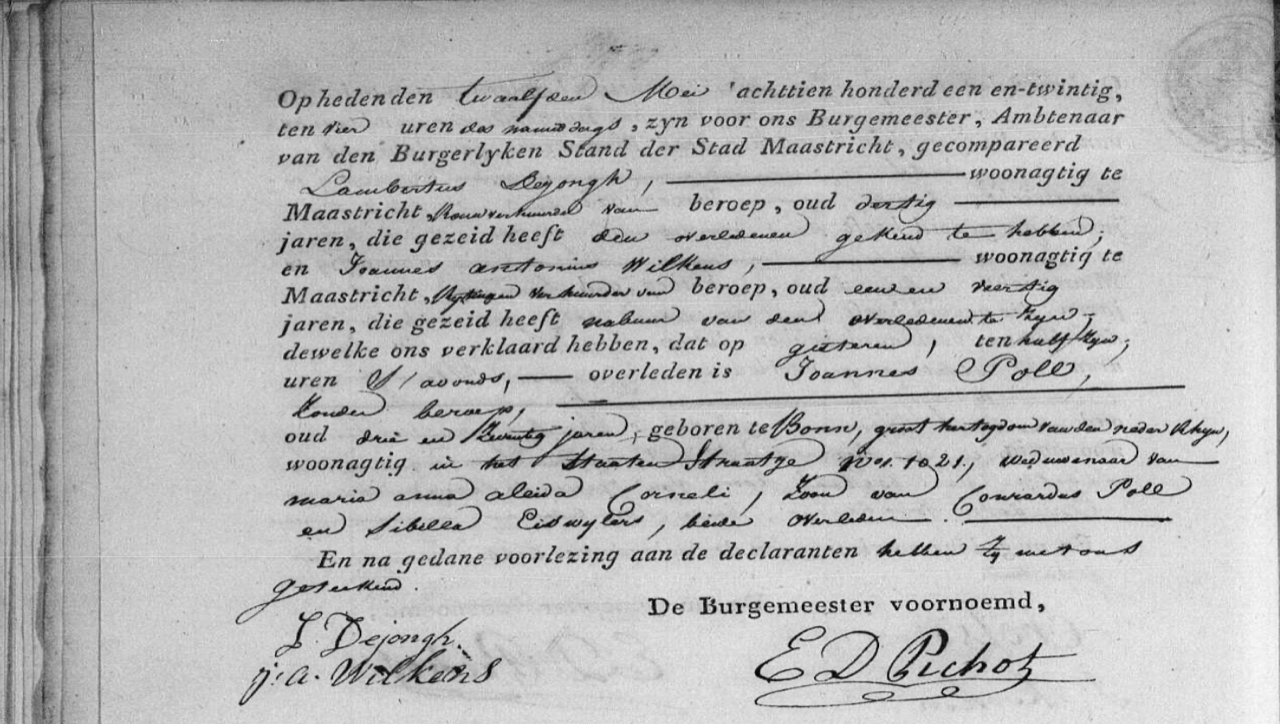 Op heden den twaalfden Mei achttien honderd een en-twintig,
ten vier uren des namiddags, zyn voor ons Burgemeester, Ambtenaar
van den Burgerlyken Stand der Stad Maastricht, gecompareerd
Lambertus Dejongh, woonagtig te
Maastricht, Rouwverhuurder van beroep, oud dertig
jaren, die gezeid heeft den overledenen gekend te hebben;
en Joannes antonius Wilkens, woonagtig te
Maastricht, Rytuigen verhuurder van beroep, oud een en viertig
jaren, die gezeid heeft nabuur van den overledenen te zyn;
dewelke ons verklaard hebben, dat op gisteren, ten half tien,
uren S'avonds, overleden is Joannes Poll,
zonder beroep,
oud drie en zeventig jaren, geboren te Bonn, groot hertogdom van den neder Rhyn,
woonagtig in het Staaten Straatje Nro. 1021., weduwenaar van
maria anna aleida Corneli, zoon van Conrardus Poll
en Sibella Eiswylers, beide overleden.
En na gedane voorlezing aan de declaranten hebben zy met ons
geteekend.
De Burgemeester voornoemd,
L. Dejongh.
j. a. Wilkens
E D Pichot